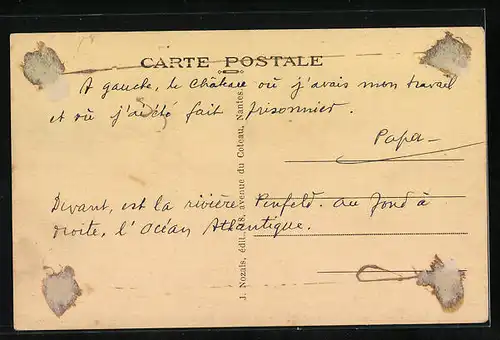 CARTE POSTALE
A gauche, le Château où j'avais mon travail
et où j'ai été fait prisonnier.
Papa
Devant, est la rivière Penfeld. Au fond à
droite, l'Océan Atlantique.
J. Nozais, édit., 18, avenue du Coteau, Nantes